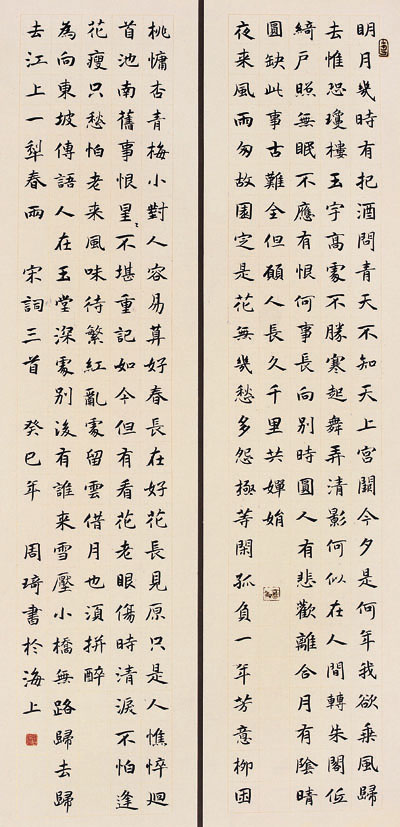 明月幾時有把酒問青天不知天上宮闕今夕是何年我欲乘風歸
去惟恐瓊樓玉宇高處不勝寒起舞弄清影何似在人間轉朱閣低
綺戶照無眠不應有恨何事長向別時圓人有悲歡離合月有陰晴
圓缺此事古難全但願人長久千里共嬋娟
夜來風雨匆故園定是花無幾愁多怨極等閑孤負一年芳意柳困
桃慵杏青梅小對人容易算好春長在好花長見原只是人憔悴迴
首池南舊事恨星〻不堪重記如今但有看花老眼傷時清淚不怕逢
花瘦只愁怕老來風味待繁紅亂處留雲借月也須拚醉
為向東坡傳語人在玉堂深處別後有誰來雪壓小橋無路歸去歸
去江上一犁春雨 宋詞三首 癸巳年 周琦書於海上